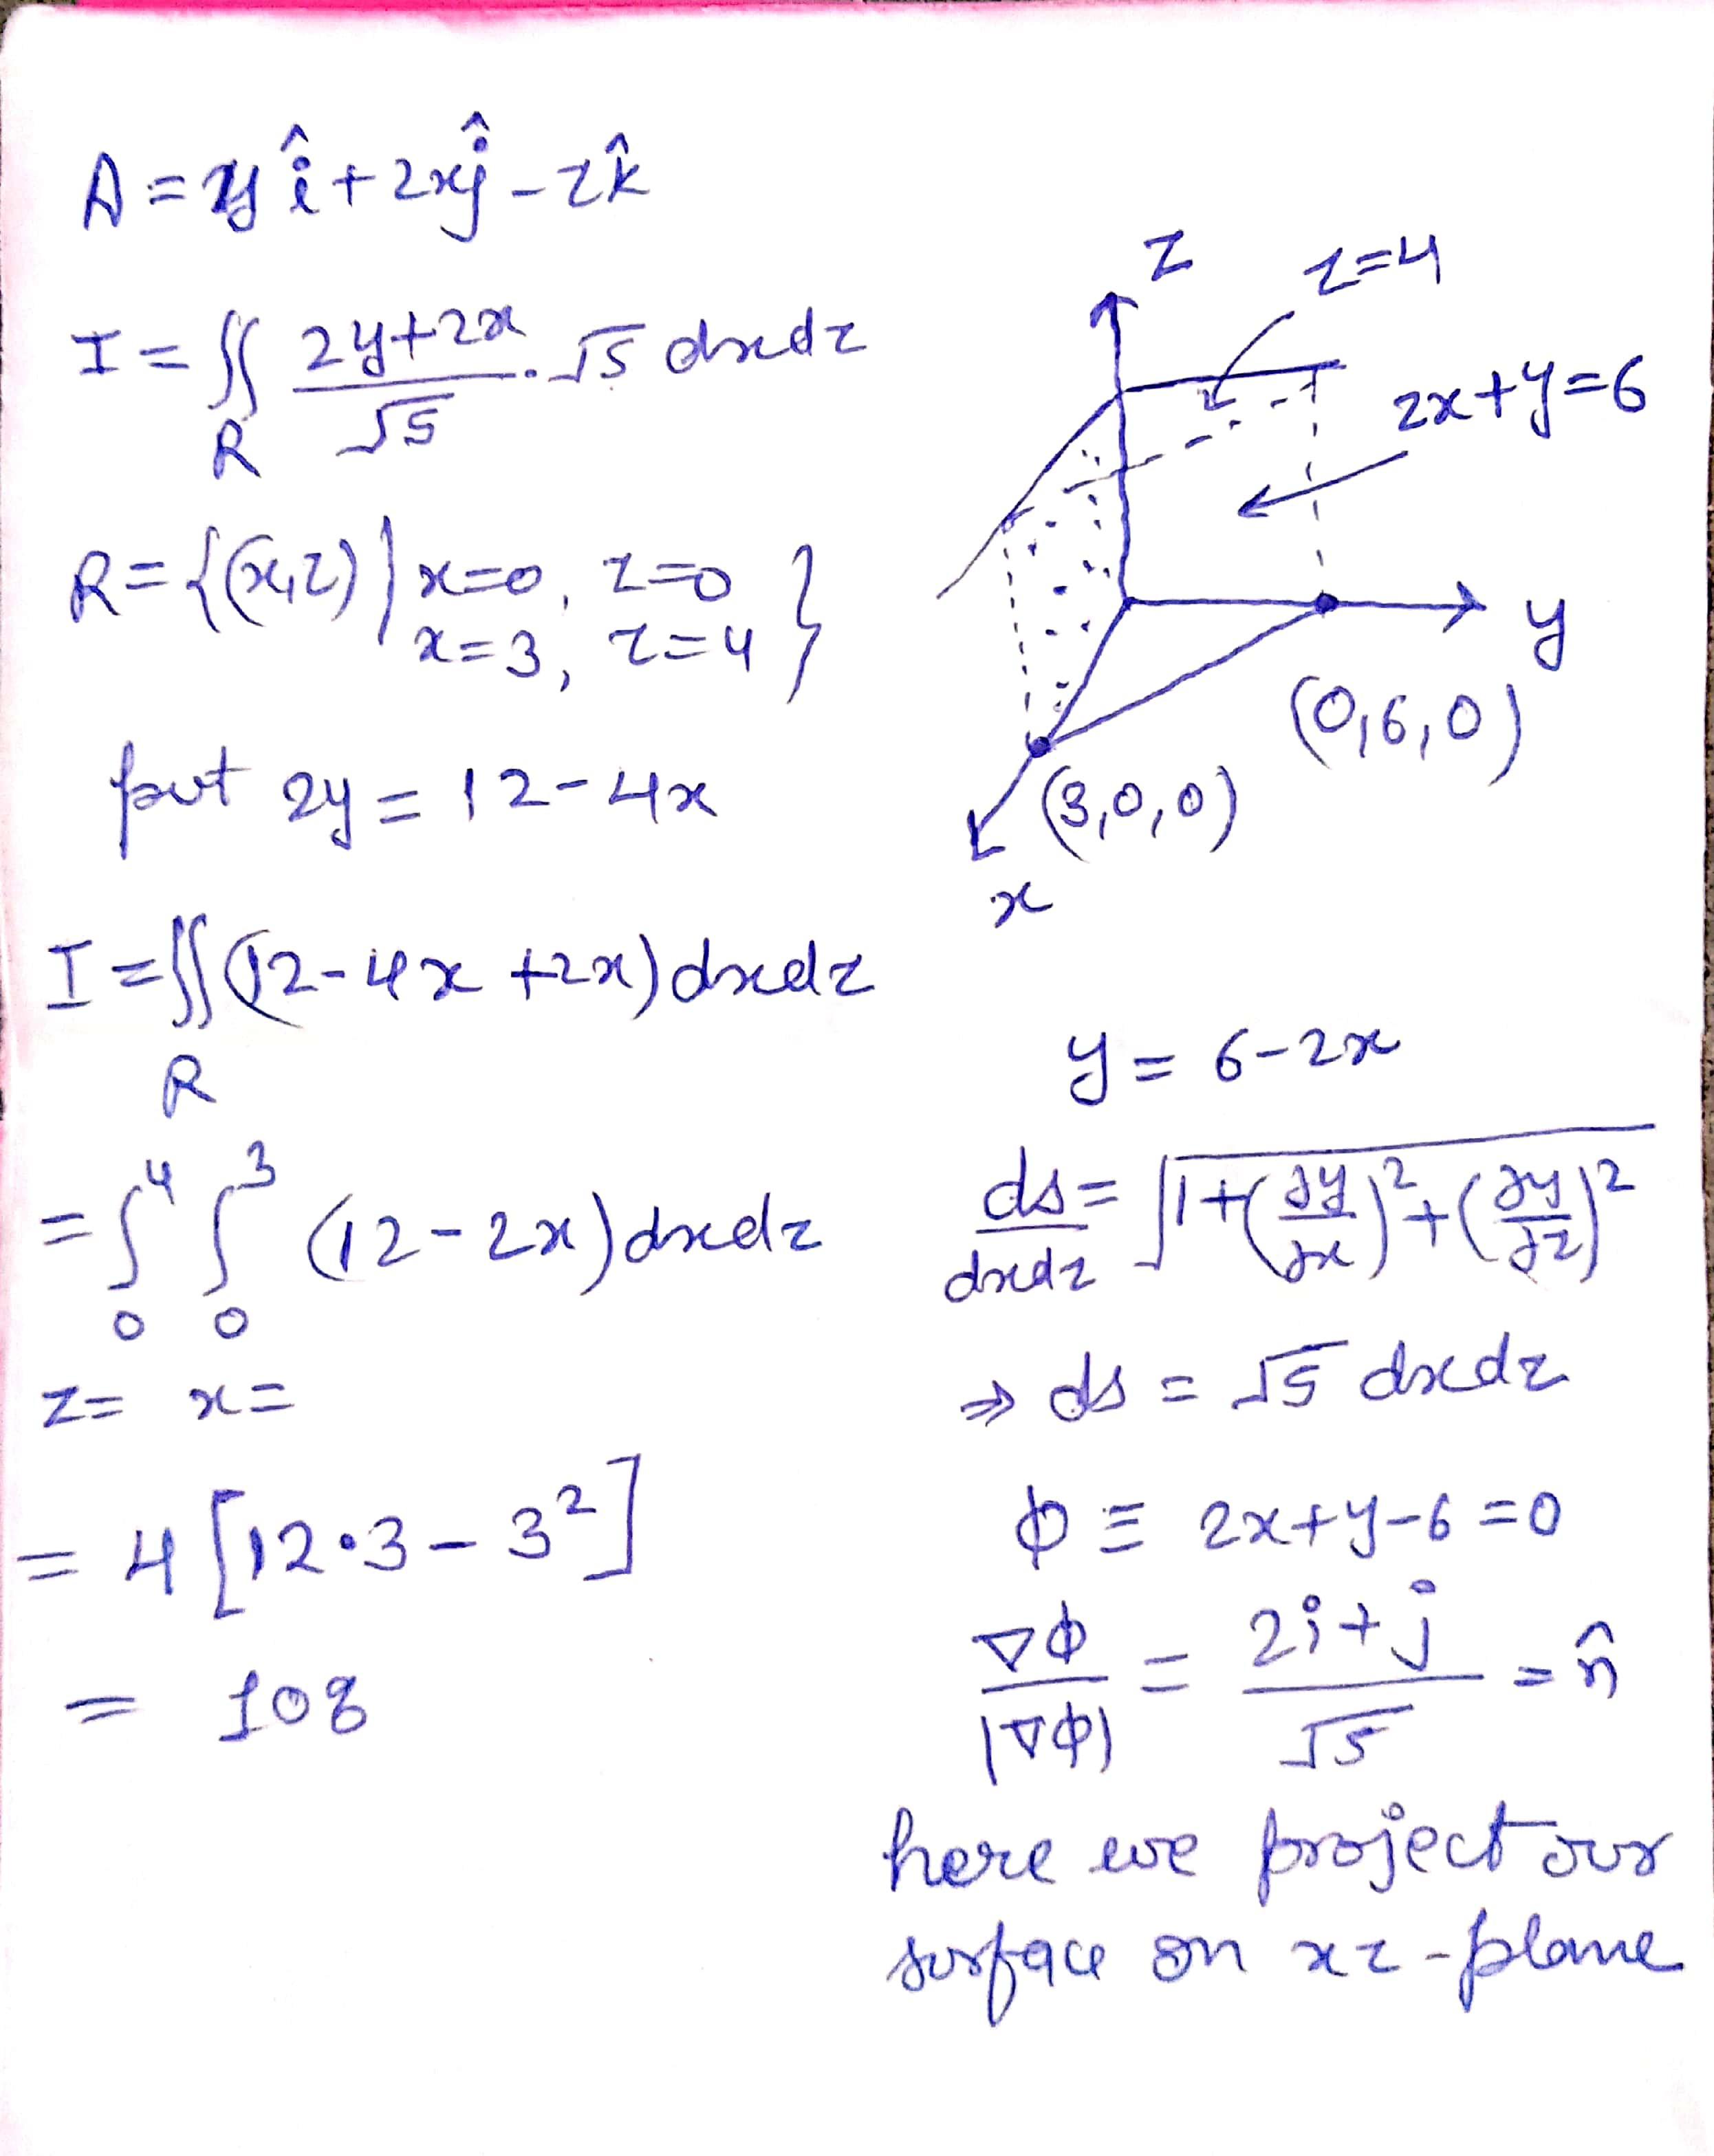 A = y î + 2xĵ - zk̂
I = ∬ (2y+2x)/√5 . √5 dxdz
R
R = {(x,z) | x=0, z=0
x=3, z=4}
put 2y = 12-4x
I = ∬ (12-4x+2x)dxdz
R
= ∫₀⁴ ∫₀³ (12-2x)dxdz
z= x=
= 4[12·3-3²]
= 108
z
z=4
2x+y=6
y
(0,6,0)
(3,0,0)
x
y = 6-2x
ds/dxdz = √(1+(∂y/∂x)²+(∂y/∂z)²)
⇒ ds = √5 dxdz
ϕ ≡ 2x+y-6=0
∇ϕ/|∇ϕ| = (2i+j)/√5 = n̂
here we project our
surface on xz-plane